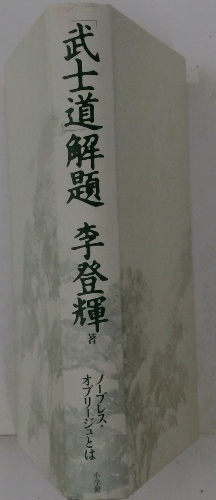 「武士道」解題
李登輝 著
ノーブレス・
オブリージュとは
小学館